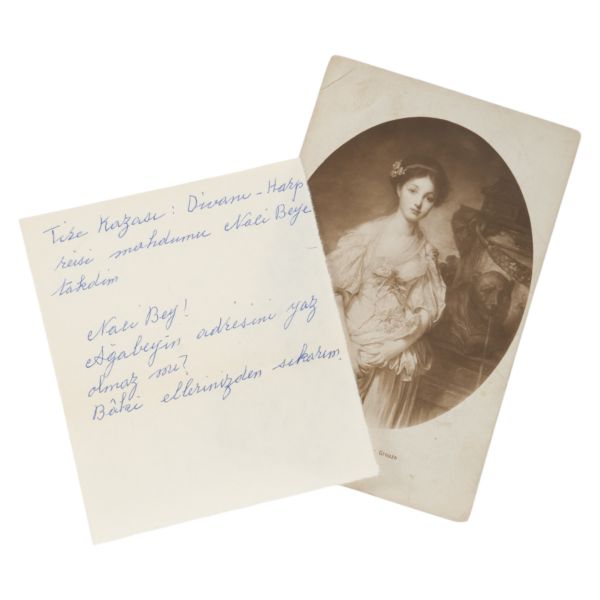 Tire Kazası: Divanı - Harp
reisi mahdumu Nali Beye
takdim
Nali Bey!
Ağabeyin adresini yaz
olmaz mı?
Bâki ellerinizden sıkarım
Greuze